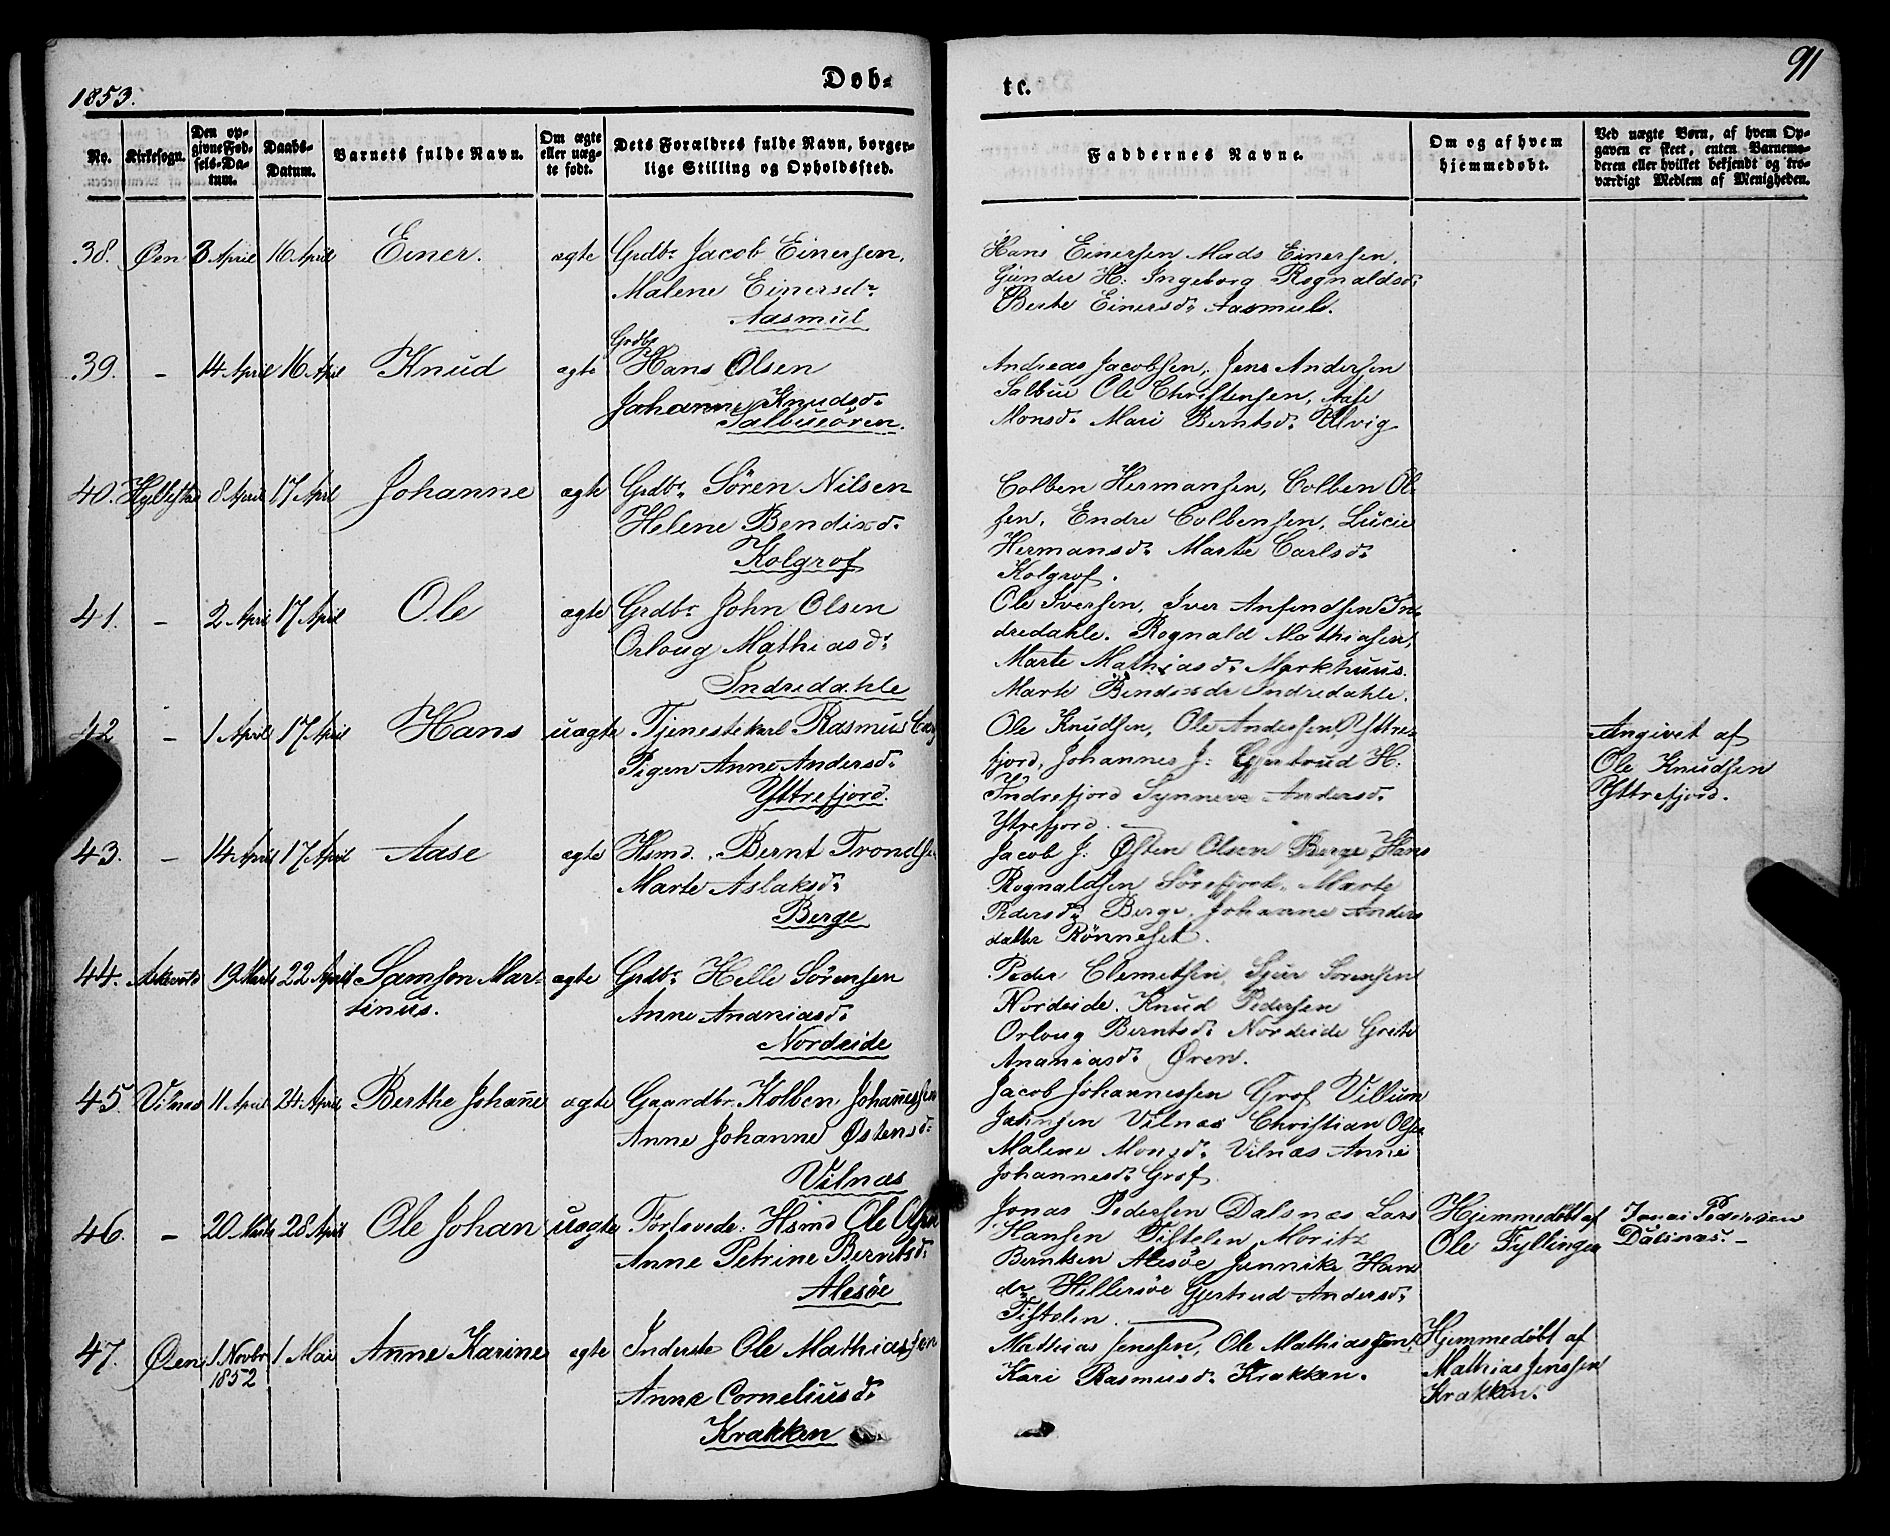 1853.
Døb-
te.
91
No.
Kirkesogn.
Den op-
givne Fød-
sels-Da-
tum.
Daabs-
Datum.
Barnets fulde Navn.
Om ægte
eller uæg-
te født.
Dets Forældres fulde Navn, borger-
lige Stilling og Opholdssted.
Faddernes Navne.
Om og af hvem
hjemmedøbt.
Ved uægte Børn, af hvem Op-
gaven er skeet, enten Barnemo-
deren eller hvilket bekjendt og tro-
værdigt Medlem af Menigheden.
38. Øen 3 April 16 April Einer. ægte Grdbr Jacob Einersen,
Malene Einersdr
Aasmul
Hans Einersen Mads Einersen,
Gunder H: Ingeborg Rognaldsdr
Berte Einersdr Aasmul.
39. - 14 April 16 April Knud ægte Grdbr
Hans Olsen
Johanne Knudsdr
Salbueøren.
Andreas Jacobsen, Jens Andersen
Salbue Ole Christensen, Aase
Monsdr Mari Berntsdr Ulvig
40. Hyllestad 8 April 17 April Johanne ægte Grdbr Søren Nilsen
Helene Bendixdr
Kolgrof
Colben Hermansen, Colben Ol-
sen, Endre Colbensen, Lucie
Hermansdr Marte Carlsdr
Kolgrof.
41. - 2 April 17 April Ole ægte Grdbr John Olsen
Orloug Mathiasdr
Indredahle
Ole Iversen, Iver Ansendsen In-
dredahle. Rognald Mathiasen,
Marte Mathiasdr Markhuus.
Marte Bendixdr Indredahle.
42 - 1 April 17 April Hans uægte Tjenestekarl Rasmus
Pigen Anne Andersdr
Yttrefjord.
Ole Knudsen, Ole Andersen Yttre-
fjord, Johannes J: Gjertrud H:
Indrefjord Synneve Andersdr
Ytrefjord.
Angivet af
Ole Knudsen
Yttrefjord.
43. - 14 April 17 April Aase ægte Hsmd. Bernt Trondsen
Marte Aslaksdr
Berge
Jacob J: Østen Olsen Berge, Hans
Rognaldsen Sørefjord, Marte
Pedersdr Berge, Johanne Anders
datter Rønneset.
44. Askevold 19 Marts 22 April Samson Mar-
tinus. ægte Grdbr Helle Sørensen
Anne Ananiasdr
Nordeide
Peder Clemetsen, Sjur Sørensen
Nordeide. Knud Pedersen
Orloug Berntsdr Nordeide Grete
Ananiasdr Øren.
45. Vilnæs 11 April 24 April Berthe Johañe ægte Gaardbr. Kolben Johañessen
Anne Johanne Østensdr
Vilnæs
Jacob Johannessen Grof Villum
Jahnsen Vilnæs Christian Olsen
Malene Monsdr Vilnæs Anne
Johannesdr Grof
46. - 20 Marts 28 April Ole Johan uægte Forlovede: Hsmd Ole Olsen
Anne Petrine Berntsdr
Alesøe
Jonas Pedersen Dalsnæs Lars
Hansen Tistelen Moritz
Berntsen Alesøe Jannike Hans
dr Hillersøe Gjertrud Andersdr
Tistelen.
Hjemmedøbt af
Ole Fyllingen
Jonas Pedersen
Dalsnæs. -
47. Øen 1 Novbr
1852 1 Mai Anne Karine ægte Inderste Ole Mathiassen
Anne Corneliusdr
Krakken
Mathias Jenssen, Ole Mathiassen,
Kari Rasmusdr Krakken.
Hjemmedøbt af
Mathias Jenssen
Krakken.